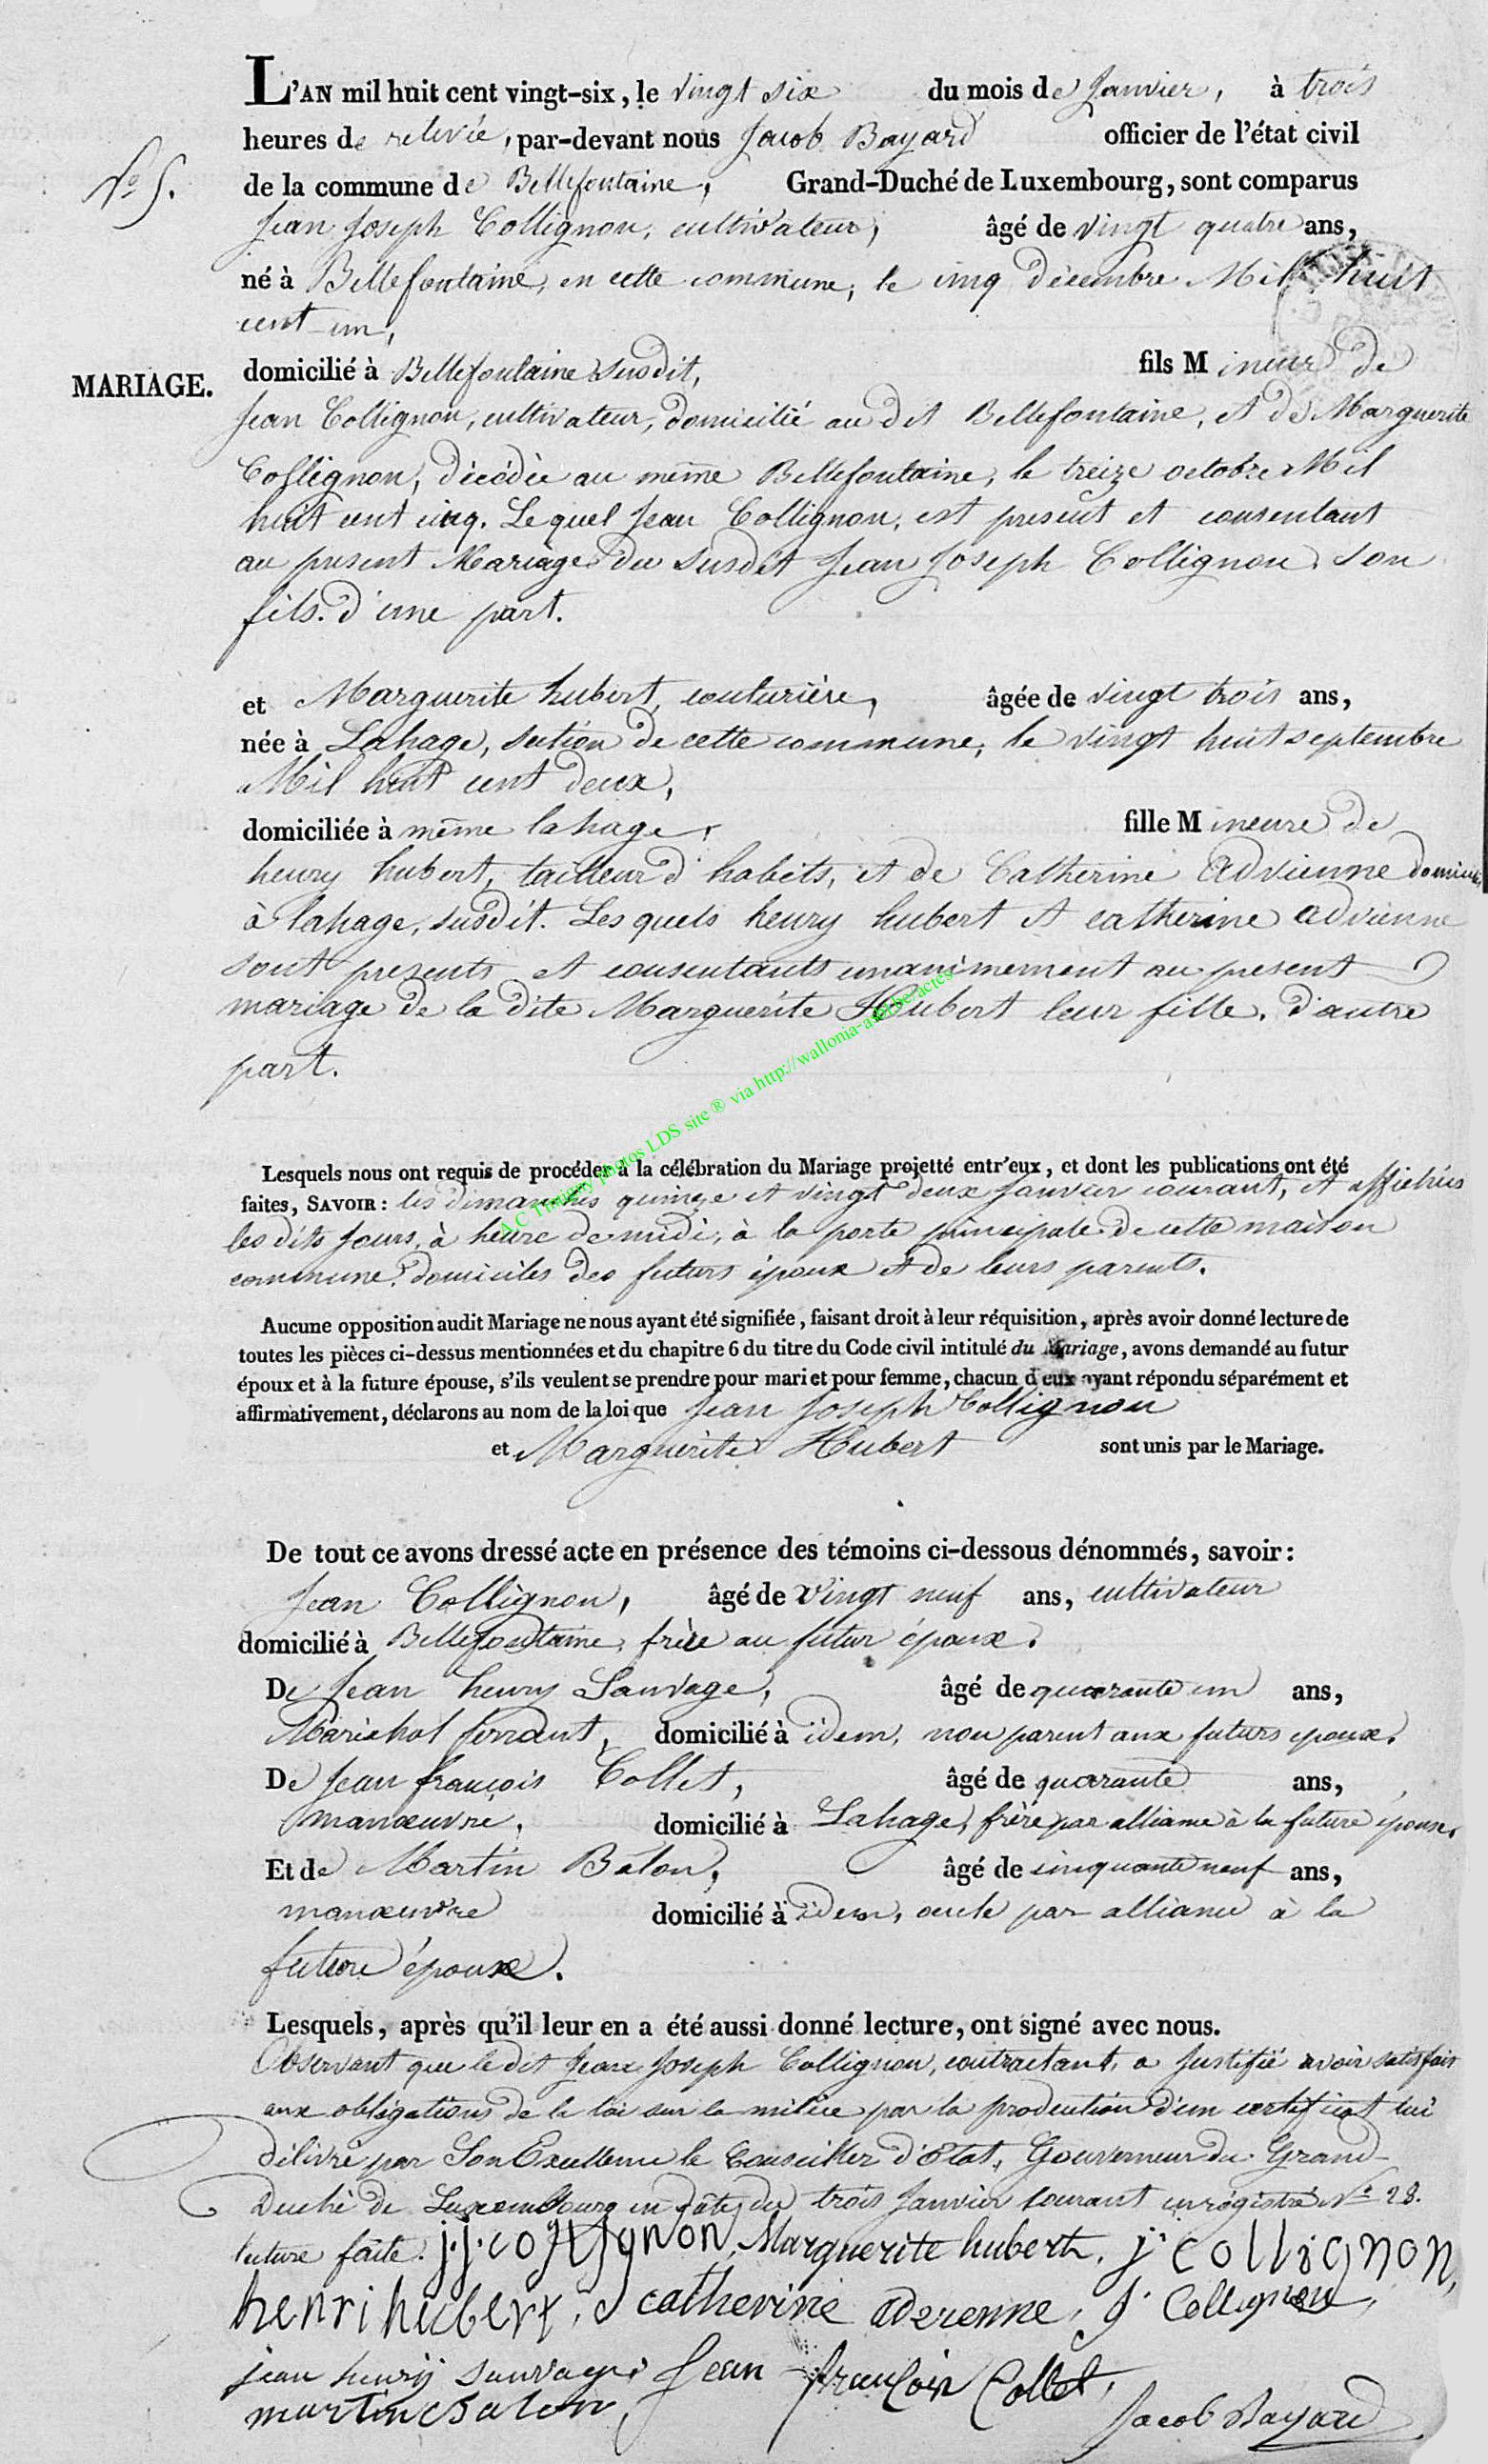 L'AN mil huit cent vingt-six, le vingt six du mois de Janvier, à trois
heures de relevée, par-devant nous Jacob Bayard officier de l'état civil
N° 5.
de la commune de Bellefontaine, Grand-Duché de Luxembourg, sont comparus
Jean Joseph Collignon, cultivateur, âgé de vingt quatre ans,
né à Bellefontaine, en cette commune, le cinq décembre Mil huit
cent un,
MARIAGE.
domicilié à Bellefontaine susdit, fils Mineur de
Jean Collignon, cultivateur, domicilié au dit Bellefontaine, et de Marguerite
Collignon, décédée au même Bellefontaine, le treize octobre Mil
huit cent cinq. Le quel Jean Collignon, est present et consentant
au present Mariage du susdit Jean Joseph Collignon son
fils. d'une part.
et Marguerite hubert, couturière, âgée de vingt trois ans,
née à Lahage, section de cette commune, le vingt huit septembre
Mil huit cent deux,
domiciliée à même lahage, fille Mineure de
henry hubert, tailleur d'habits, et de Catherine Advienne
à lahage, susdit. Les quels henry hubert et catherine advienne
sont presents et consentants unanimement au present
mariage de la dite Marguerite Hubert leur fille. d'autre
part.
A.C Tintigny photos LDS site ® via http://wallonia-asbl.be/actes
Lesquels nous ont requis de procéder à la célébration du Mariage projetté entr'eux, et dont les publications ont été
faites, SAVOIR: les dimanches quinze et vingt deux Janvier courant, et affichées
les dits jours, à heure de midi, à la porte principale de cette maison
commune, domiciles des futurs époux et de leurs parents.
Aucune opposition audit Mariage ne nous ayant été signifiée, faisant droit à leur réquisition, après avoir donné lecture de
toutes les pièces ci-dessus mentionnées et du chapitre 6 du titre du Code civil intitulé du Mariage, avons demandé au futur
époux et à la future épouse, s'ils veulent se prendre pour mari et pour femme, chacun d'eux ayant répondu séparément et
affirmativement, déclarons au nom de la loi que Jean Joseph Collignon
et Marguerite Hubert sont unis par le Mariage.
De tout ce avons dressé acte en présence des témoins ci-dessous dénommés, savoir:
Jean Collignon, âgé de vingt neuf ans, cultivateur
domicilié à Bellefontaine, frère au futur époux.
De Jean henry Sauvage, âgé de quarante un ans,
Maréchal ferrant, domicilié à idem, non parent aux futurs époux.
De Jean françois Collet, âgé de quarante ans,
manœuvre, domicilié à Lahage, frère par alliance à la future épouse.
Et de Martin Balon, âgé de cinquante neuf ans,
manœuvre domicilié à idem, oncle par alliance à la
future épouse.
Lesquels, après qu'il leur en a été aussi donné lecture, ont signé avec nous.
Observant que le dit Jean Joseph Collignon, contractant, a justifié avoir satisfait
aux obligations de la loi sur la milice par la production d'un certificat lui
délivré par Son Excellence le Conseiller d'Etat, Gouverneur du Grand-
Duché de Luxembourg en date du trois Janvier courant enrégistré N° 28.
lecture faite. j.j. collignon, Marguerite hubert, j. collignon,
henri hubert, catherine aderenne, J. Collignon,
jean henry sauvage, Jean françois Collet,
martin balon, Jacob Bayard